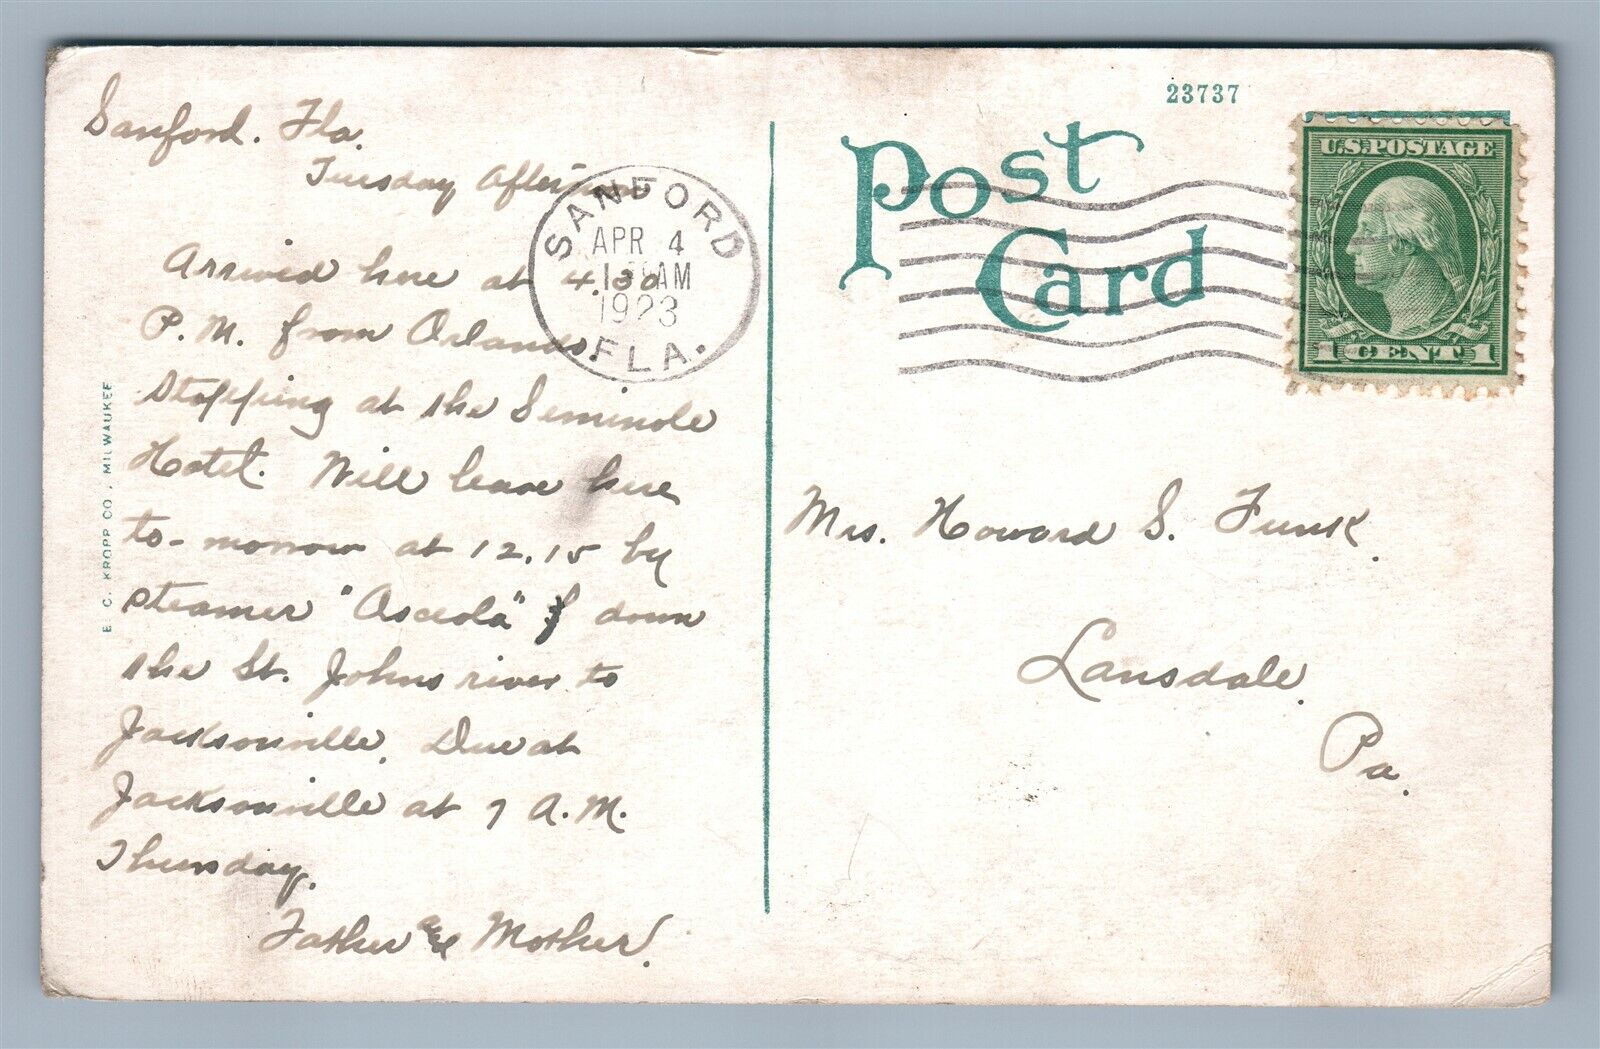 Sanford. Fla.
Tuesday Afternoon
Arrived here at 4.30
P. M. from Orlando.
Stopping at the Seminole
Hotel. Will leave here
to-morrow at 12.15 by
steamer "Osceola" down
the St. Johns river to
Jacksonville. Due at
Jacksonville at 7 A.M.
Thursday.
Father and Mother.
E. C. KROPP CO., MILWAUKEE
SANFORD
APR 4
AM
1923
FLA.
23737
Post
Card
U.S. POSTAGE
1 CENT 1
Mrs. Howard S. Funk.
Lansdale.
Pa.